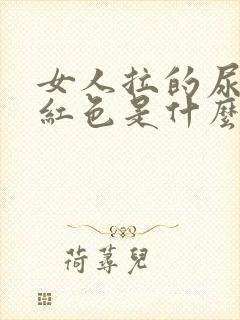 女人拉的尿
紅色是什麼
荷蕁兒